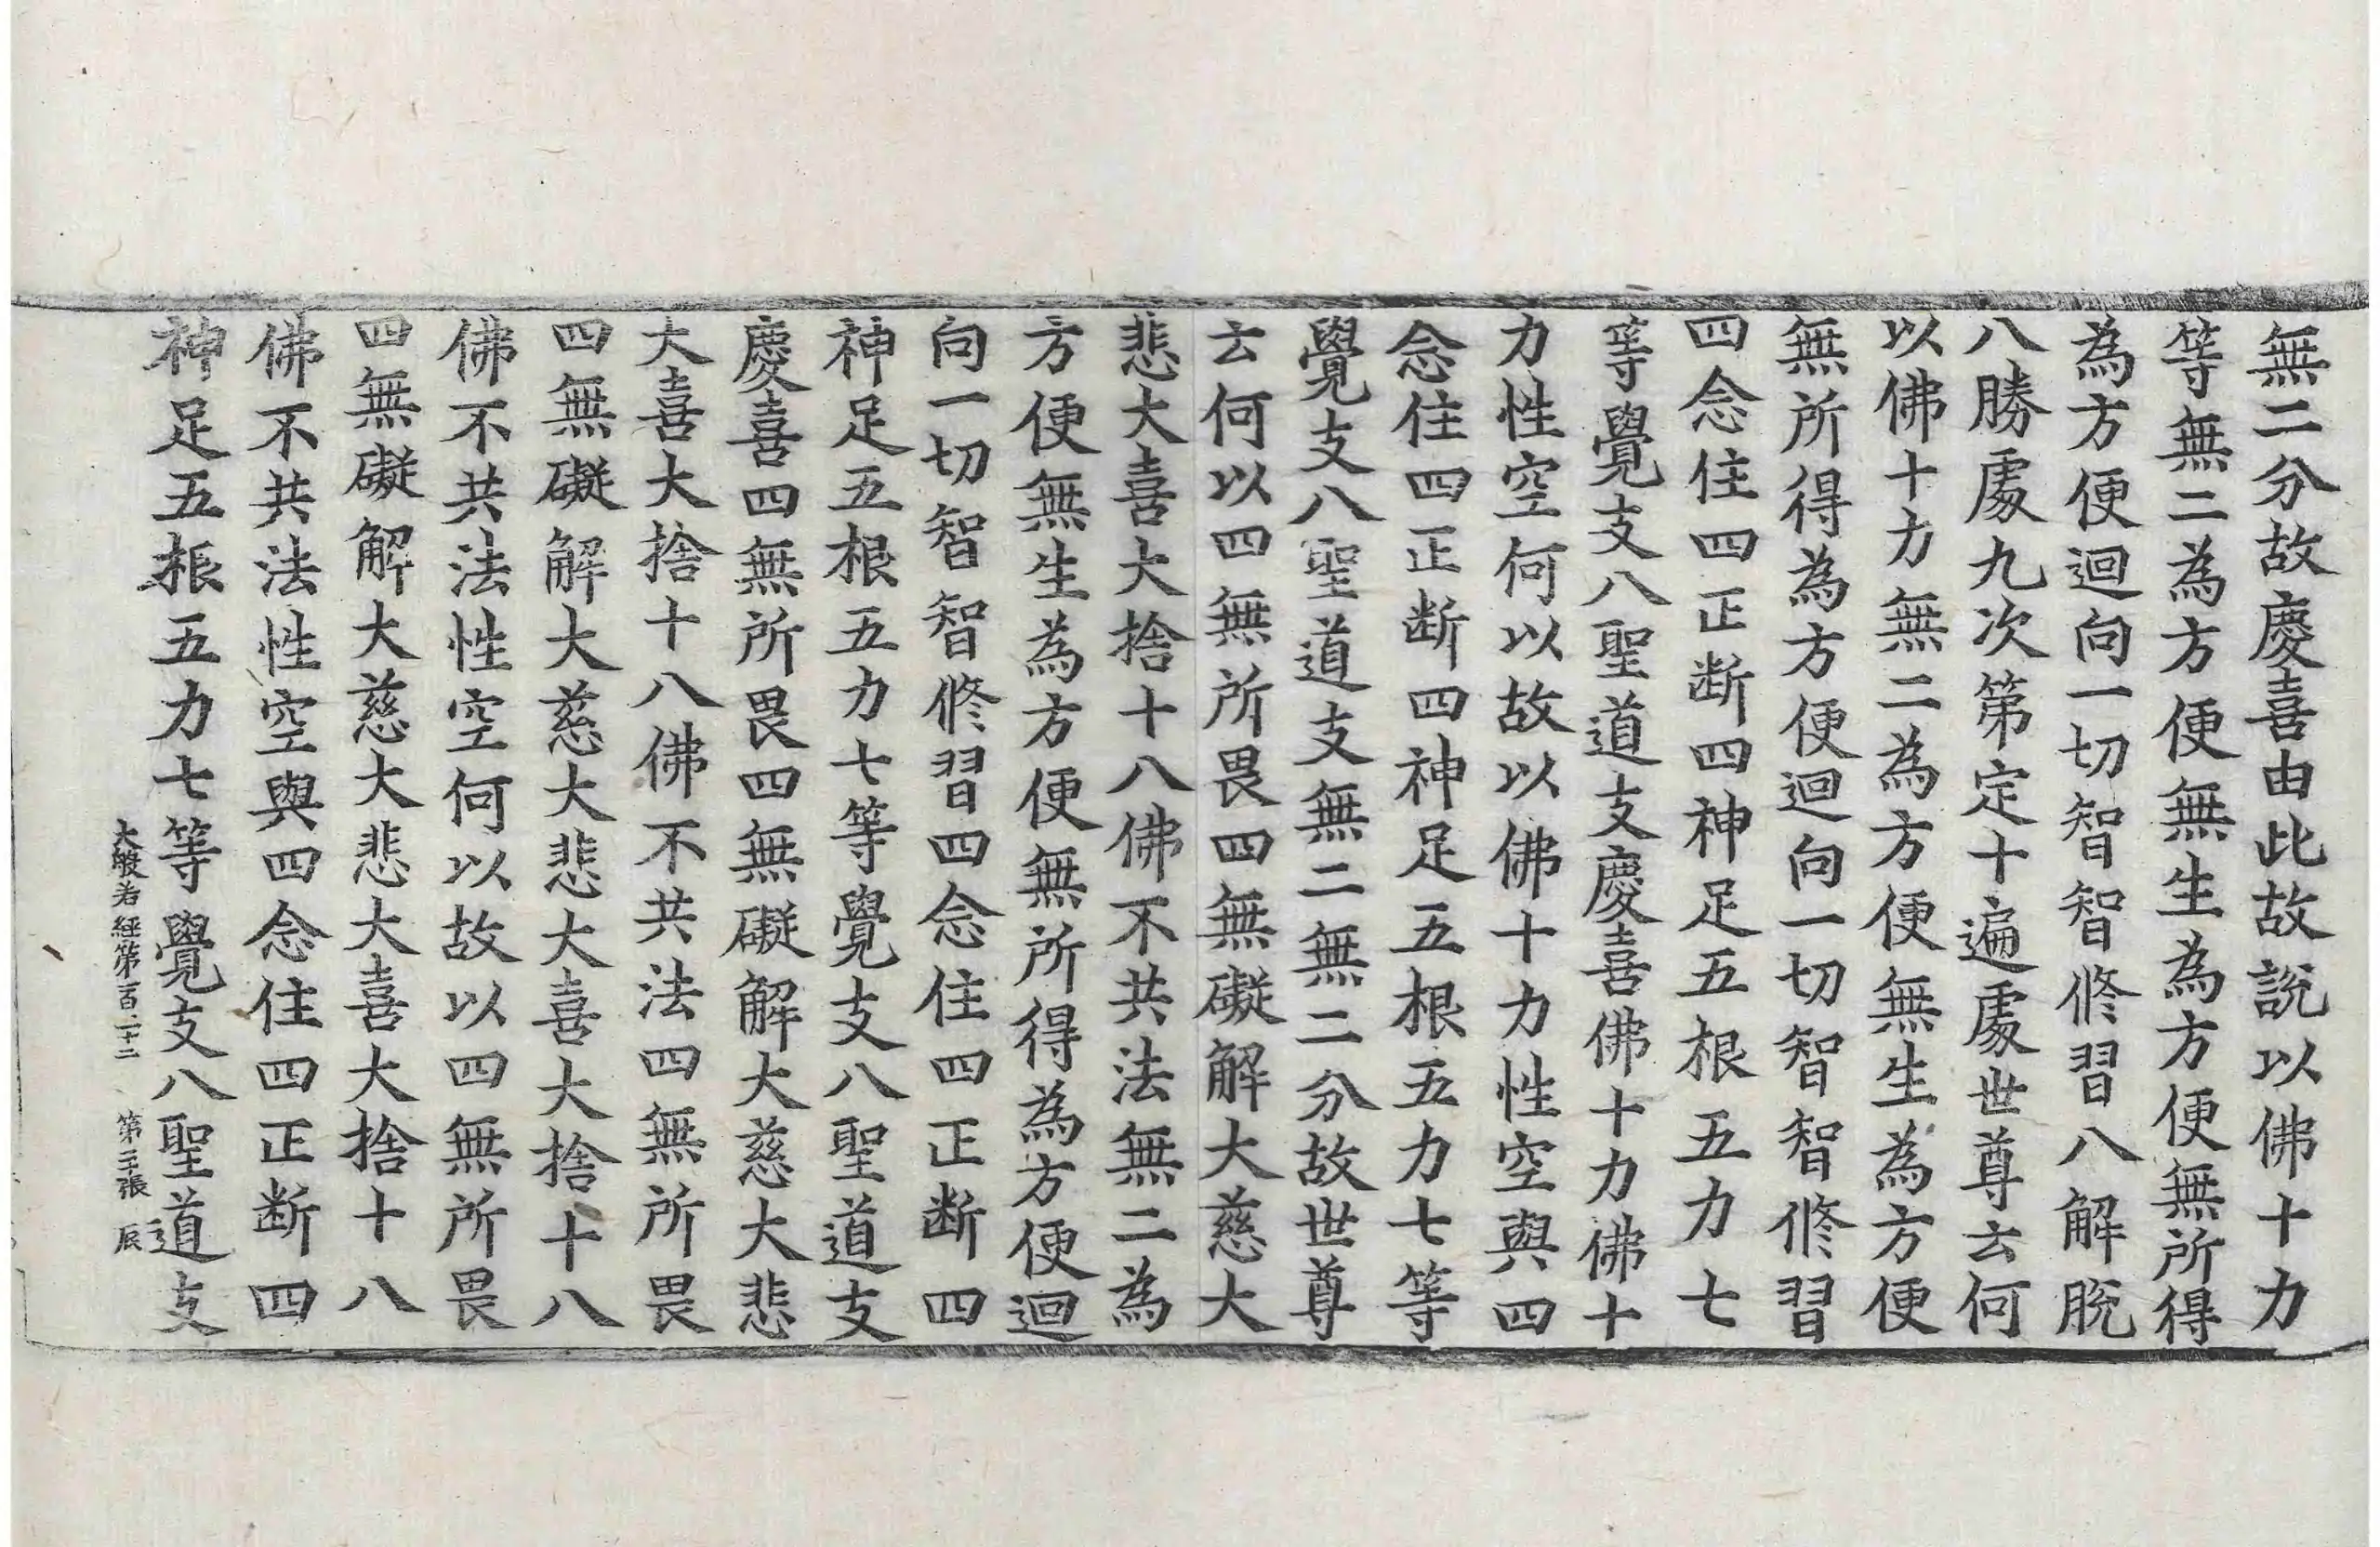 無二分故慶喜由此故説以佛十力
等無二為方便無生為方便無所得
為方便迴向一切智智修習八解脫
八勝處九次第定十遍處世尊云何
以佛十力無二為方便無生為方便
無所得為方便迴向一切智智修習
四念住四正断四神足五根五力七
等覺支八聖道支慶喜佛十力佛十
力性空何以故以佛十力性空與四
念住四正断四神足五根五力七等
覺支八聖道支無二無二分故世尊
云何以四無所畏四無礙解大慈大
悲大喜大捨十八佛不共法無二為
方便無生為方便無所得為方便迴
向一切智智修習四念住四正断四
神足五根五力七等覺支八聖道支
慶喜四無所畏四無礙解大慈大悲
大喜大捨十八佛不共法四無所畏
四無礙解大慈大悲大喜大捨十八
佛不共法性空何以故以四無所畏
四無礙解大慈大悲大喜大捨十八
佛不共法性空與四念住四正断四
神足五根五力七等覺支八聖道支
大般若経第一百二十二 第三張 辰